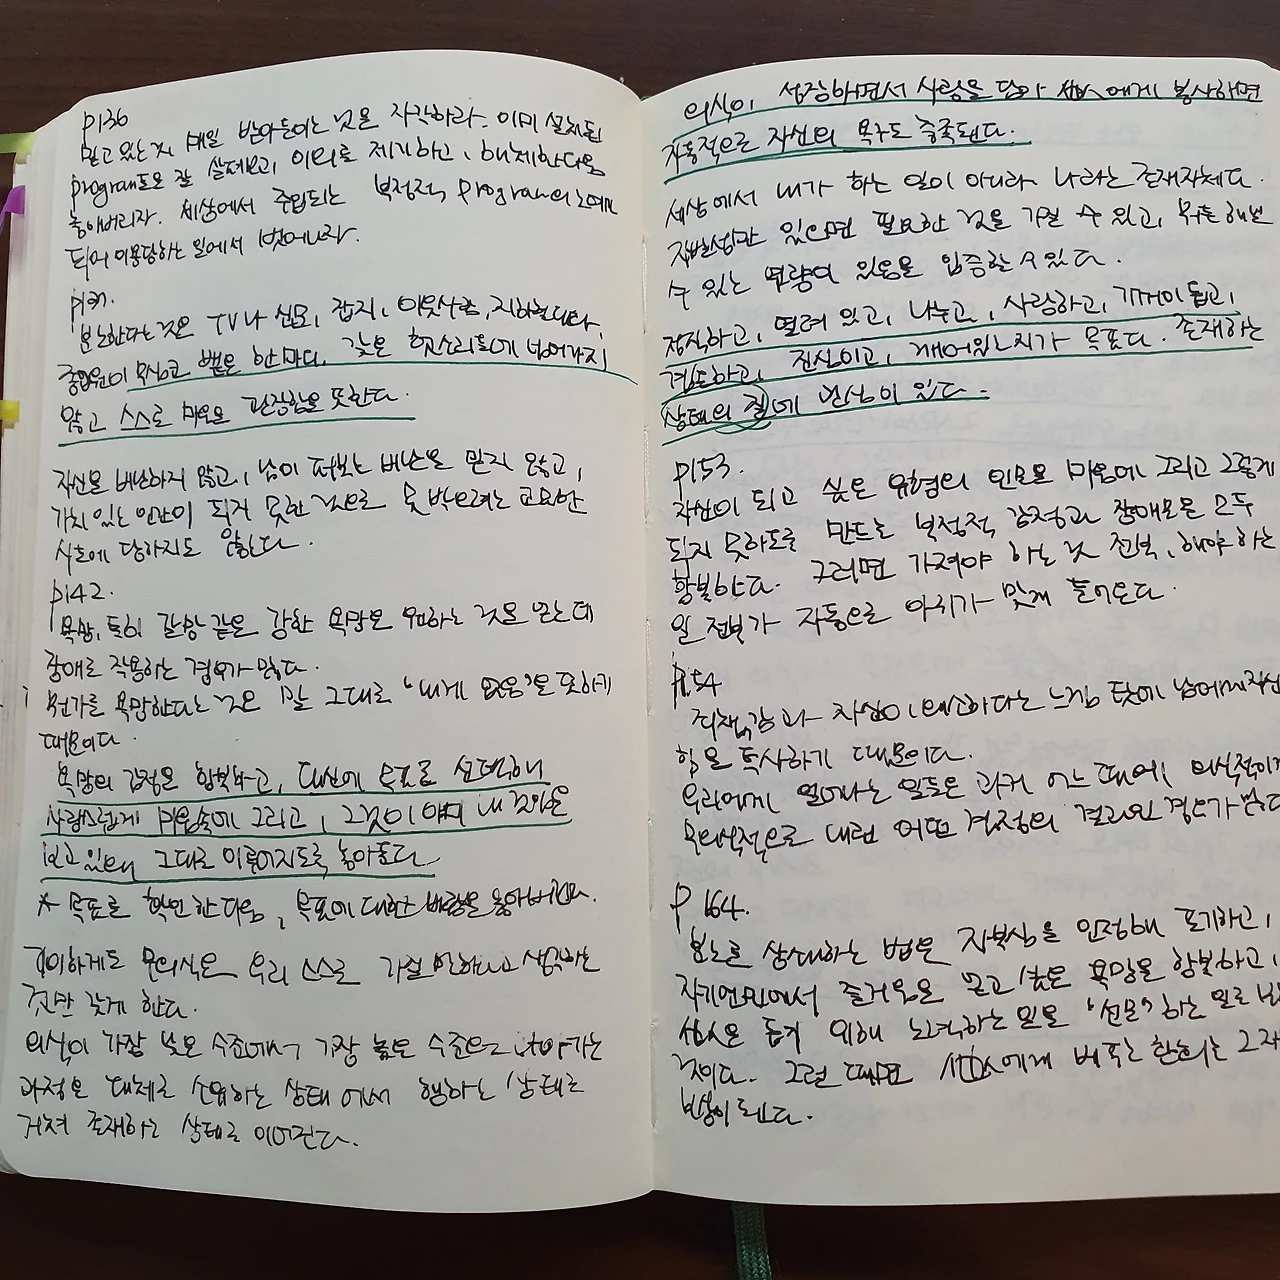 p136
믿고 있는지 매일 받아들이는 것을 자각하라. 이미 설치된
program들을 잘 살펴보고, 의의로 제기하고, 해제한다음
놓아버리자. 세상에서 주입되는 부정적 program의 노예가
되어 이용당하는 일에서 벗어나자.
p137.
분노한다는 것은 TV나 신문, 잡지, 이웃사람, 지하철이나,
종업원이 무심코 뱉은 한마디, 갖은 헛소리들에 넘어가지
않고 스스로 마음을 관장함을 뜻한다.
자신을 비난하지 않고, 남이 퍼붓는 비난을 믿지 않고,
가치 있는 인간이 되지 못한 것으로 못 박으려는 교묘한
시도에 당하지도 않는다.
p142.
욕망, 특히 갈망 같은 강한 욕망은 원하는 것을 얻는데
장애로 작용하는 경우가 많다.
뭔가를 욕망한다는 것은 말 그대로 '내게 없음'을 뜻하기
때문이다.
욕망의 감정을 항복하고, 대신에 목표로 선택해
사랑스럽게 마음속에 그리고, 그것이 이미 내 것임을
알고 있으며 그대로 이루어지도록 놓아둔다.
* 목표를 확인한다음, 목표에 대한 바람을 놓아버린다.
기이하게도 무의식은 우리 스스로 가질 만하다고 생각하는
것만 갖게 한다.
의식이 가장 낮은 수준에서 가장 높은 수준으로 나아가는
과정은 대체로 소유하는 상태에서 행하는 상태를
거쳐 존재하는 상태로 이어진다.
의식이 성장하면서 사랑을 담아 세상에게 봉사하면
자동적으로 자신의 욕구도 충족된다.
세상에서 내가 하는 일이 아니라 나라는 존재자체다.
자발성만 있으면 필요한 것을 가질 수 있고, 뭐든 해낼
수 있는 역량이 있음을 입증할 수 있다.
정직하고, 열려 있고, 나누고, 사랑하고, 기꺼이 돕고,
겸손하고, 진심이고, 깨어있는지가 목표다. 존재하는
상태의 질에 변성이 있다.
p153.
자신이 되고 싶은 유형의 인물을 마음에 그리고 그렇게
되지 못하도록 만드는 부정적 감정과 장애물을 모두
항복한다. 그러면 가져야 하는 것 전부, 해야 하는
일 전부가 자동으로 아귀가 맞게 들어온다.
p154
죄책감과 자신이 왜소하다는 느낌 탓에 남에게 자신
힘을 투사하기 때문이다.
우리에게 일어나는 일들은 과거 어느 때에 의식적이거
무의식적으로 내린 어떤 결정의 결과인 경우가 많다
p 164.
분노를 상대하는 법은 자부심을 인정해 포기하고,
자기연민에서 즐거움을 얻고 싶은 욕망을 항복하고,
세상을 돕기 위해 노력하는 일을 '선물'하는 일로 보는
것이다. 그런 때면 세상에게 베푸는 환희는 그 자
보상이 된다.